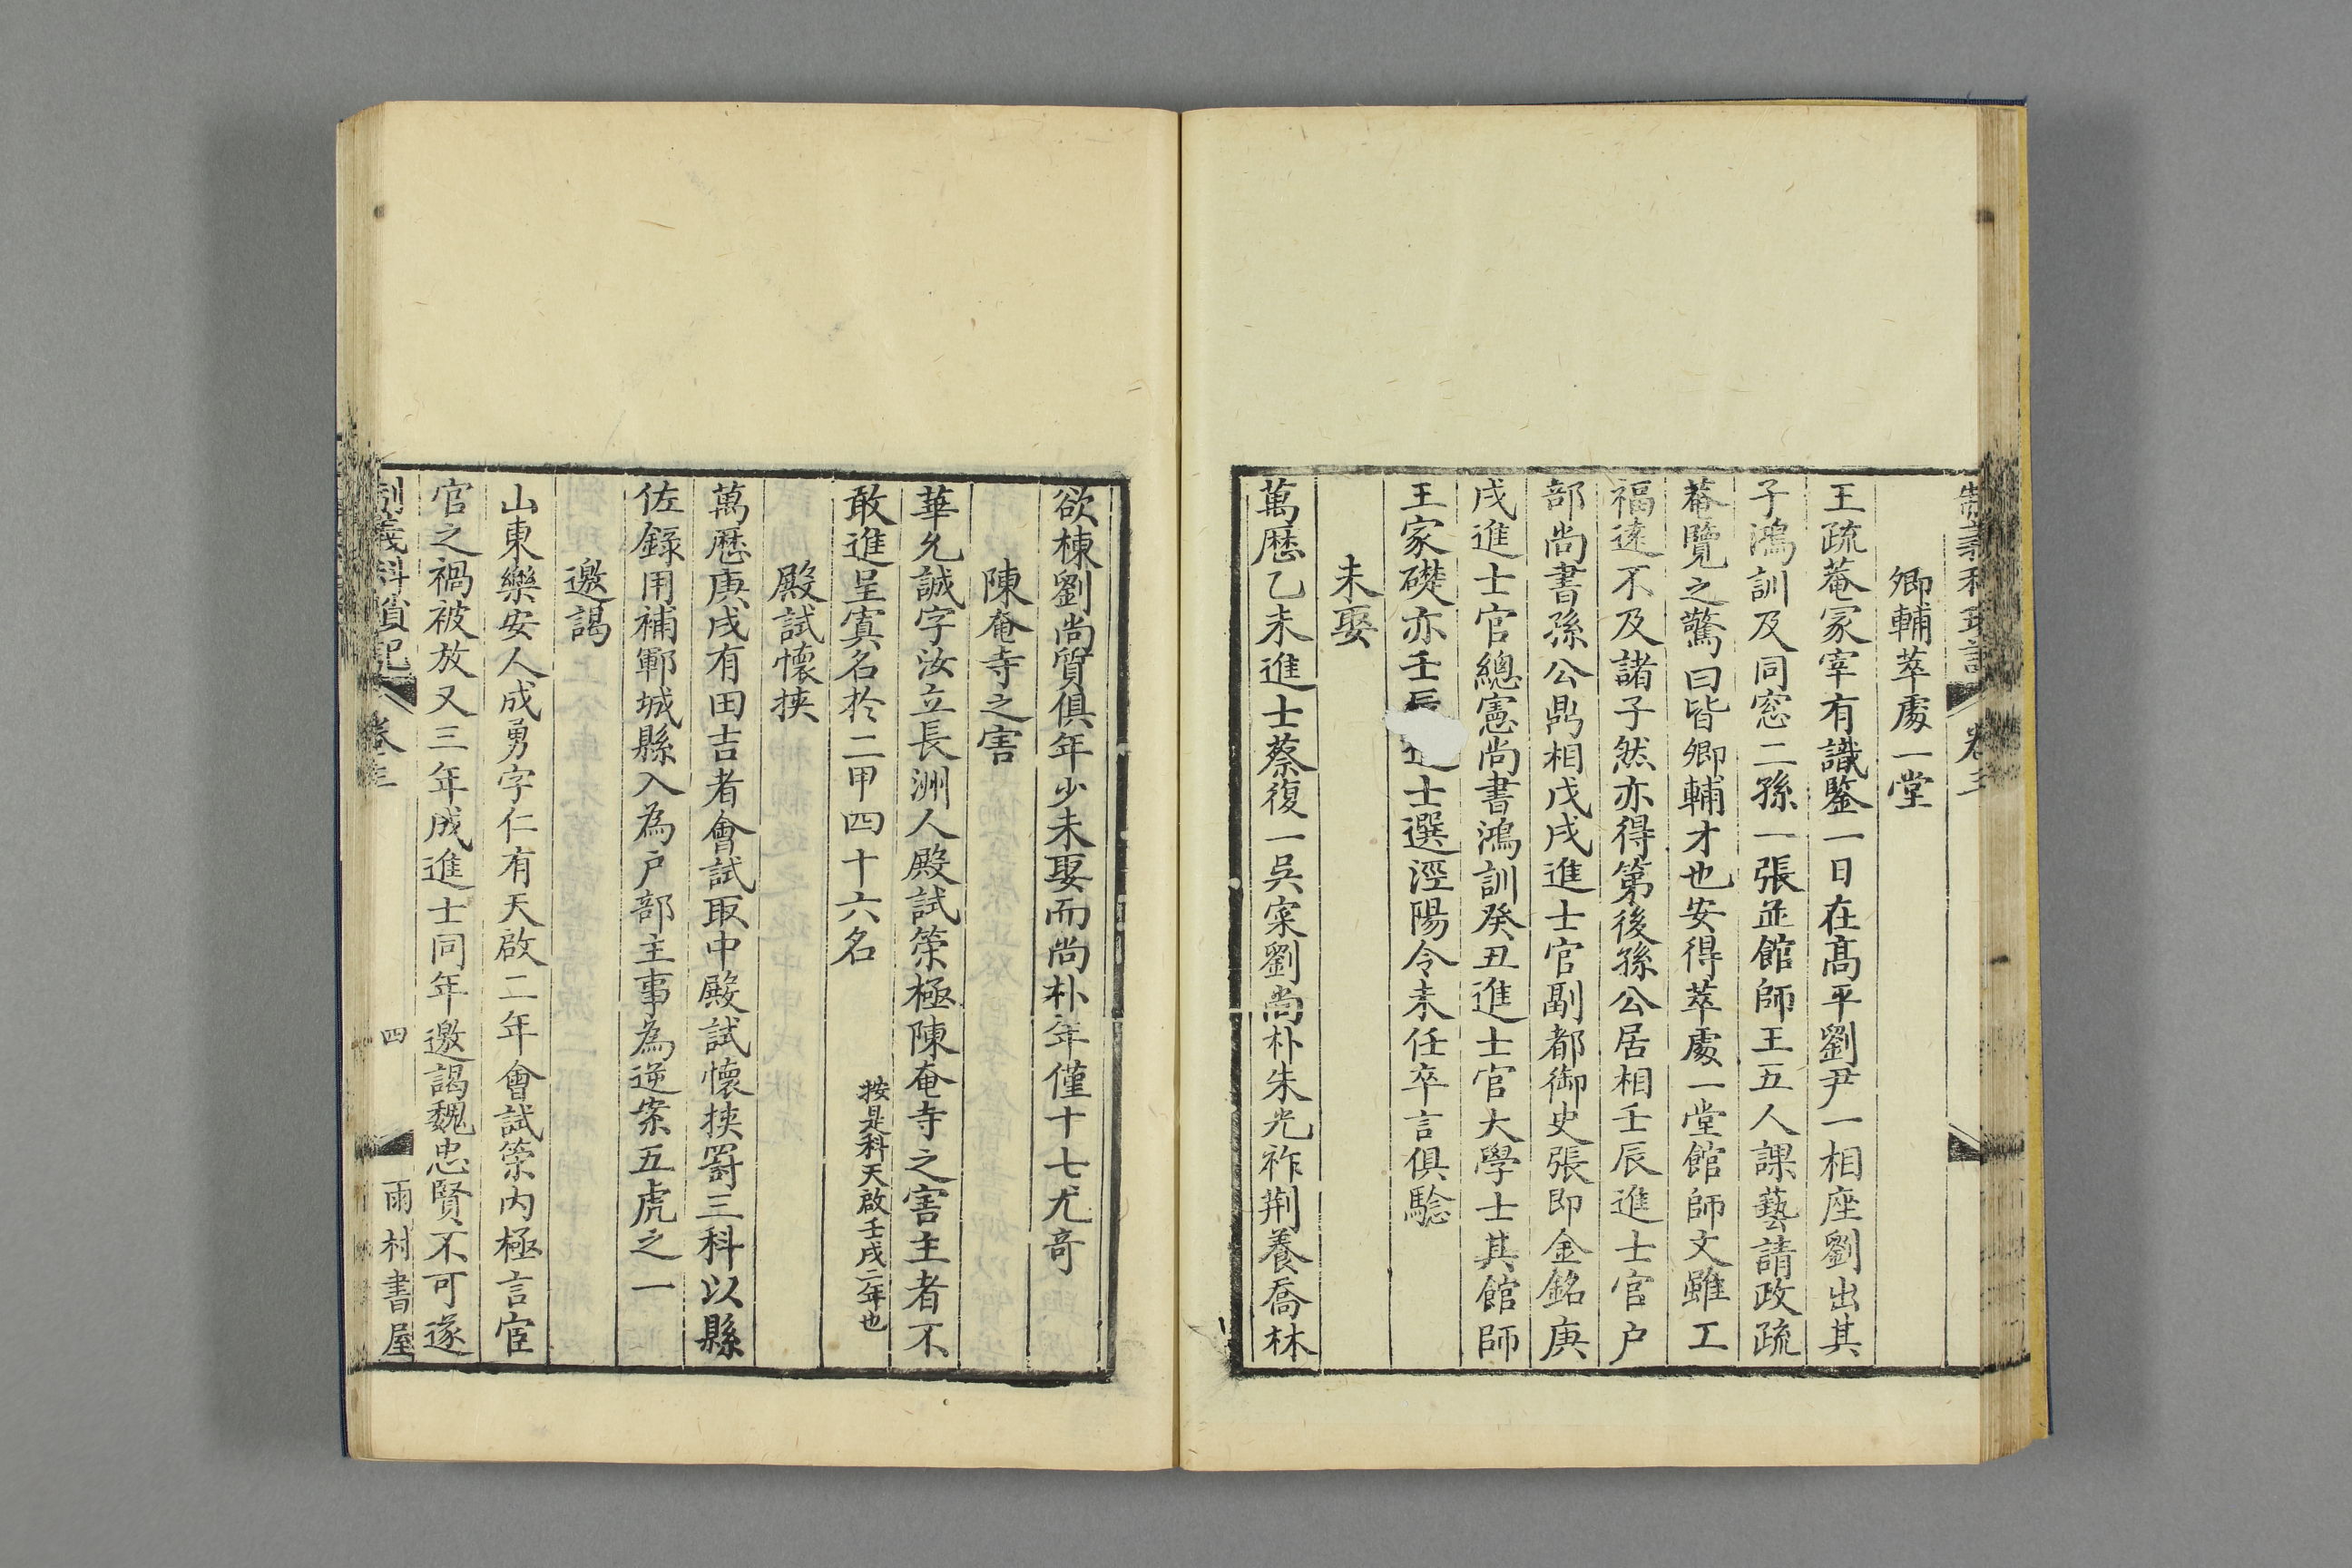 制義科瑣記
卷三
卿輔萃處一堂
王疏菴冢宰有識鑒一日在高平劉尹一相座劉出其
子鴻訓及同窓二孫一張並館師王五人課藝請政疏
菴覽之驚曰皆卿輔才也安得萃處一堂館師文雖工
福遠不及諸子然亦得第後孫公居相壬辰進士官户
部尚書孫公鼎相戊戌進士官副都御史張即金銘庚
戌進士官總憲尚書鴻訓癸丑進士官大學士其館師
王家礎亦壬辰進士選涇陽令未任卒言俱騐
未娶
萬厯乙未進士蔡復一吳寀劉尚朴朱光祚荆養喬林
欲棟劉尚質俱年少未娶而尚朴年僅十七尤奇
陳奄寺之害
華允誠字汝立長洲人殿試策極陳奄寺之害主者不
敢進呈寘名於二甲四十六名
按是科天啟壬戌二年也
殿試懷挾
萬厯庚戌有田吉者會試取中殿試懷挾罸三科以縣
佐錄用補鄆城縣入為户部主事為逆案五虎之一
邀謁
山東樂安人成勇字仁有天啟二年會試策内極言宦
官之禍被放又三年成進士同年邀謁魏忠賢不可遂
制義科瑣記
卷三
四
雨村書屋